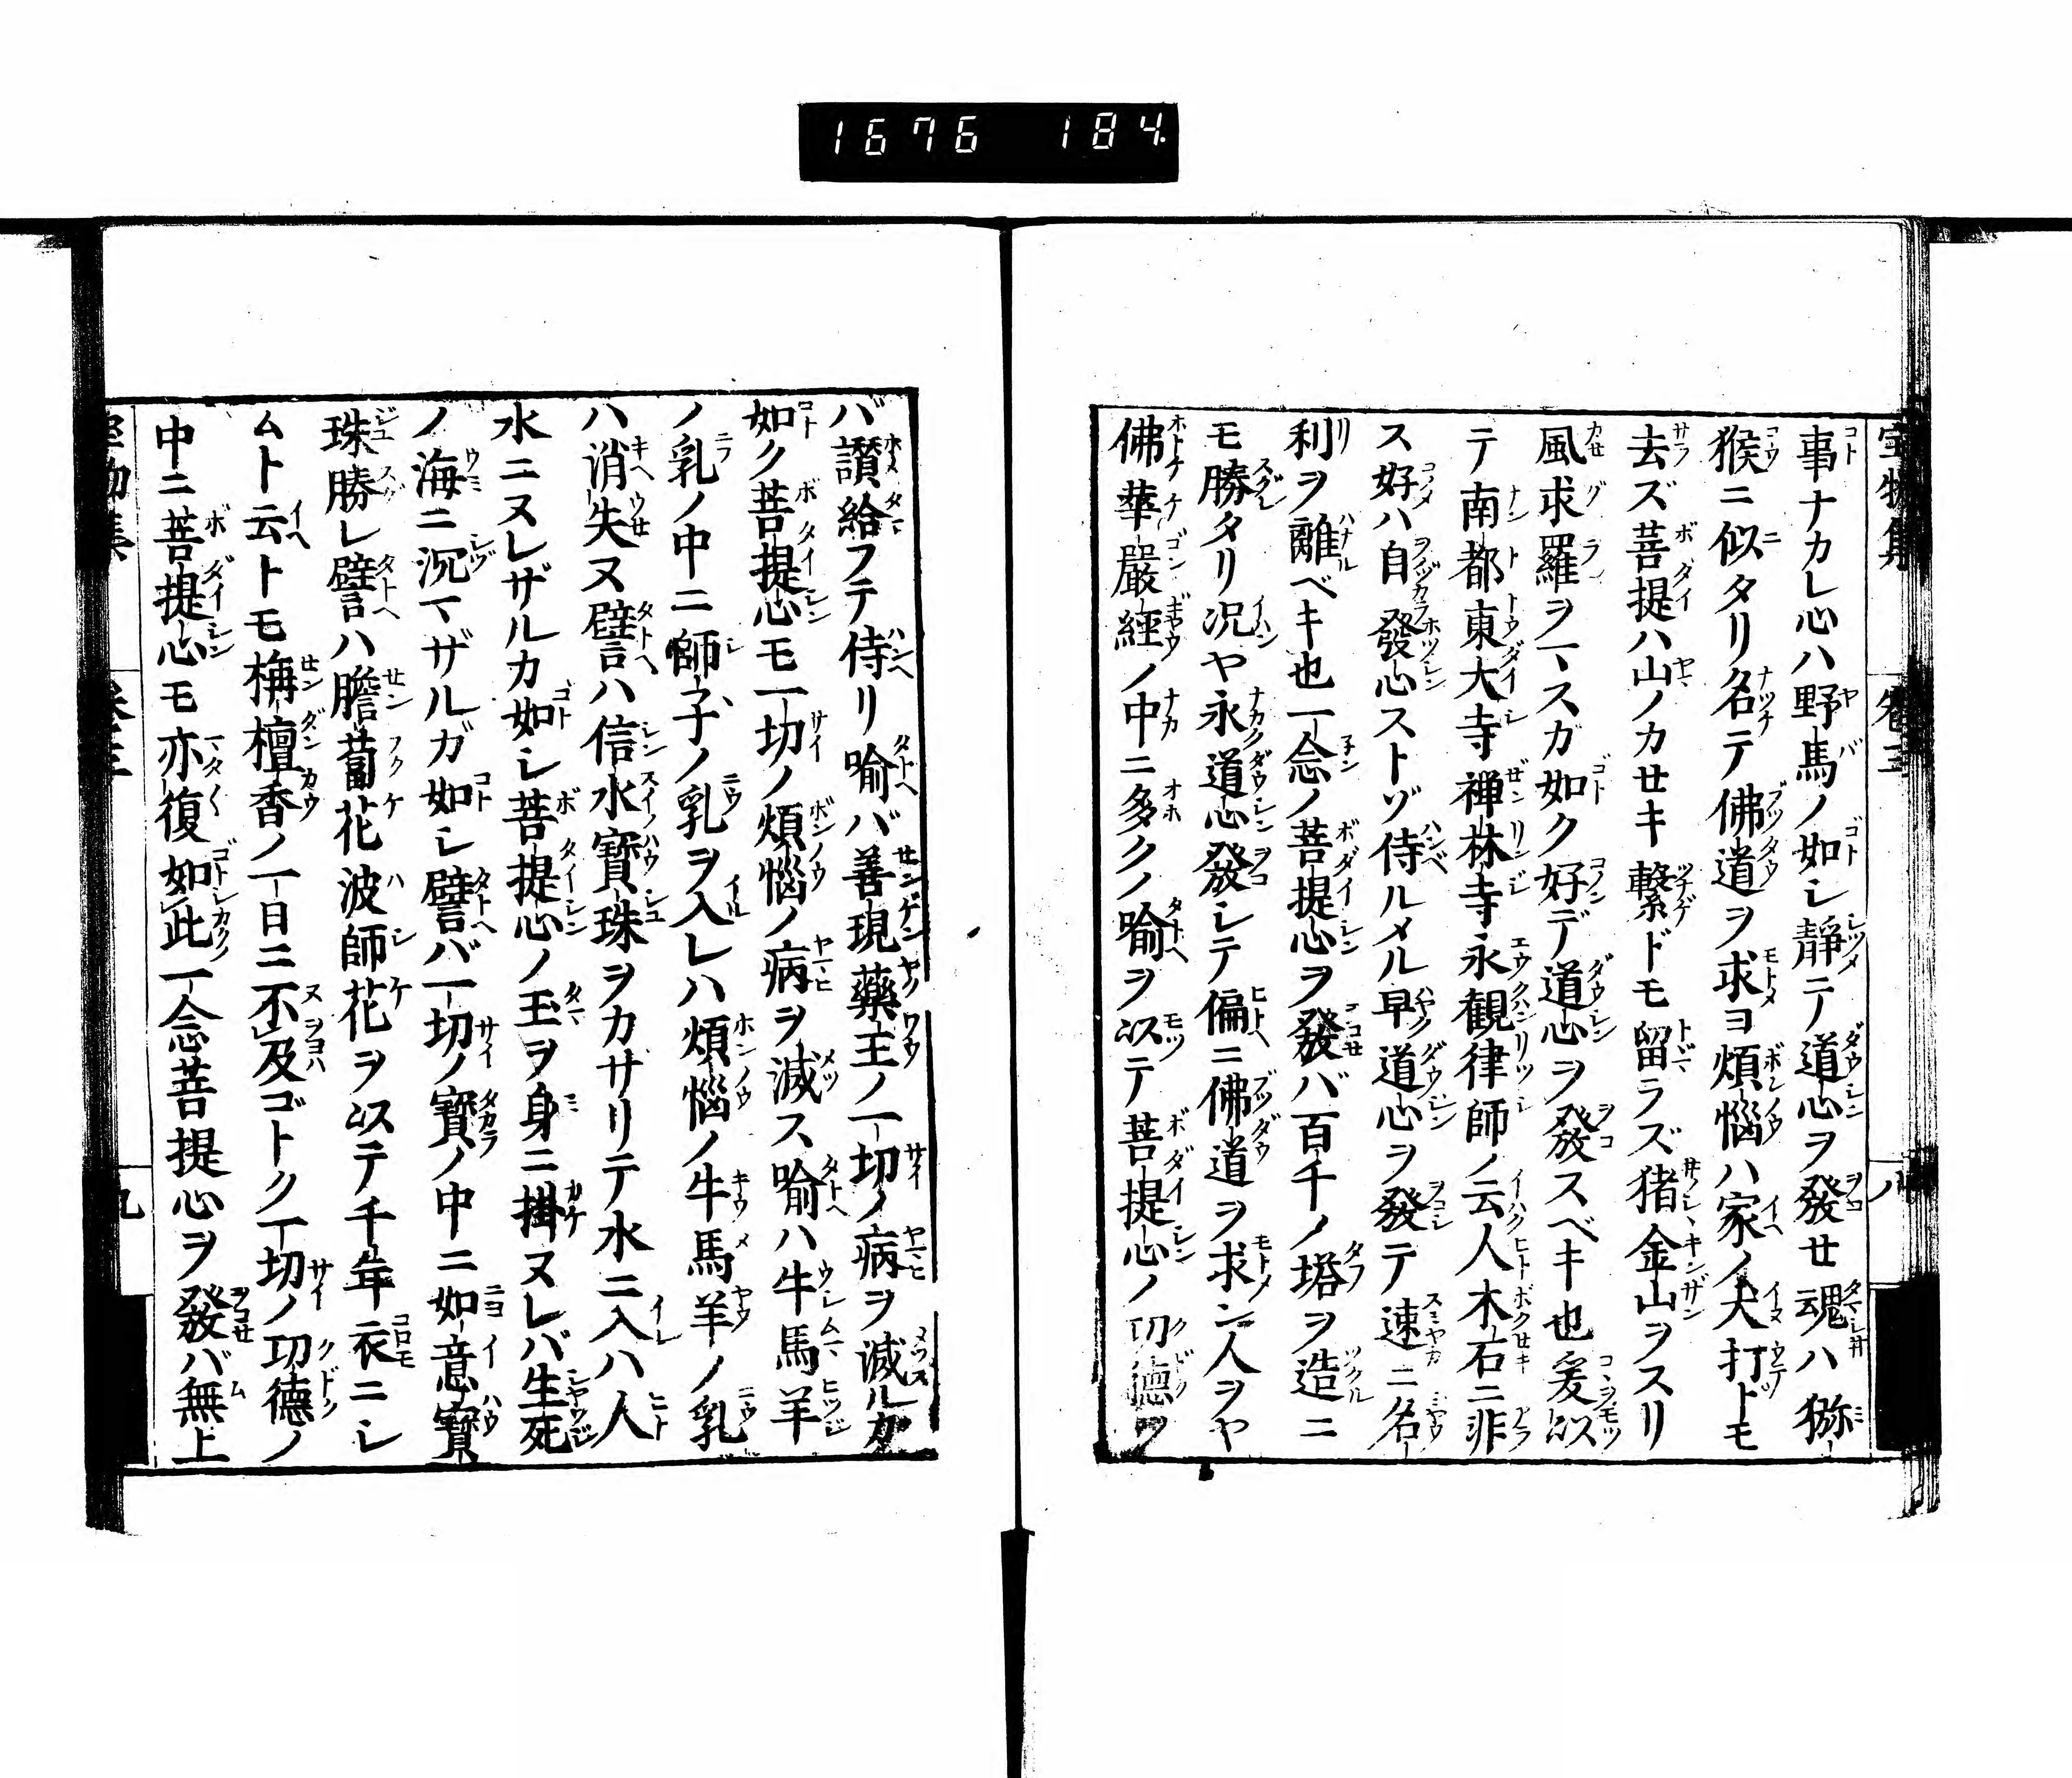 1676 184
宝物集 巻三 八
事ナカレ心ハ野馬ノ如レ靜ニテ道心ヲ發セ魂ハ猕
猴ニ似タリ名テ佛道ヲ求ヨ煩惱ハ家ノ犬打トモ
去ズ菩提ハ山ノカセキ繋ドモ留ラズ猪金山ヲスリ
風求羅ヲマスガ如ク好デ道心ヲ發スベキ也爰以
テ南都東大寺禅林寺永観律師ノ云人木石ニ非
ス好ハ自發心ストゾ侍ルメル早道心ヲ發テ速ニ名
利ヲ離ベキ也一念ノ菩提心ヲ發バ百千ノ塔ヲ造ニ
モ勝タリ况ヤ永道心發レテ偏ニ佛道ヲ求ン人ヲヤ
佛華嚴經ノ中ニ多クノ喻ヲ以テ菩提心ノ功德ヲ
バ讃給フテ侍リ喻バ善現藥王ノ一切ノ病ヲ滅ルカ
如ク菩提心モ一切ノ煩惱ノ病ヲ滅ス喻ハ牛馬羊
ノ乳ノ中ニ師子ノ乳ヲ入レハ煩惱ノ牛馬羊ノ乳
ハ消失ヌ譬ハ信水寶珠ヲカザリテ水ニ入ハ人
水ニヌレザルカ如シ菩提心ノ玉ヲ身ニ掛ヌレバ生死
ノ海ニ沉マザルガ如シ譬バ一切ノ寳ノ中ニ如意寳
珠勝レ譬ハ膽蔔花波師花ヲ以テ千年衣ニシ
ムト云トモ栴檀香ノ一日ニ不及ゴトク一切ノ功德ノ
中ニ菩提心モ亦復如此一念菩提心ヲ發バ無上
宝物集 巻三 九